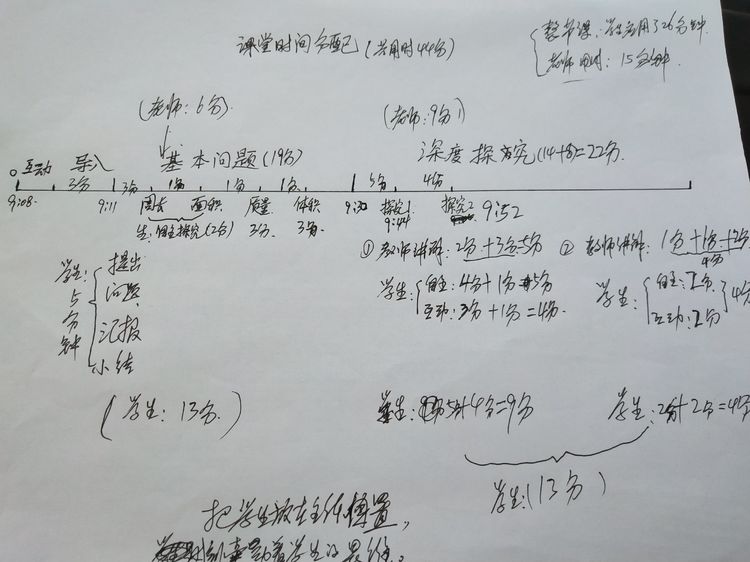 课堂时间分配(共用时44分)
整节课:学生应用了26分钟
老师用时:15分钟
(老师:6分)
(老师:9分)
互动 导入
基本问题(19分)
深度探究(14+8)=22分
3分 3分 1分 1分 1分 5分 4分
9:08 9:11 周长 面积 质量 体积 9:30 探究1 探究2 9:52
9:44
生:自主探究(2分) 3分 3分
①教师讲解:2分+3分=5分
②教师讲解:1分+1分+2分
4分
学生:
5分钟
提出
问题
汇报
小结
学生:
自主:4分+1分=5分
互动:3分+1分=4分
学生:
自主:2分
互动:2分
4分
(学生:13分)
学生:5分+4分=9分
学生:2分+2分=4分
学生:(13分)
把学生放在主体位置,
学生的思维。